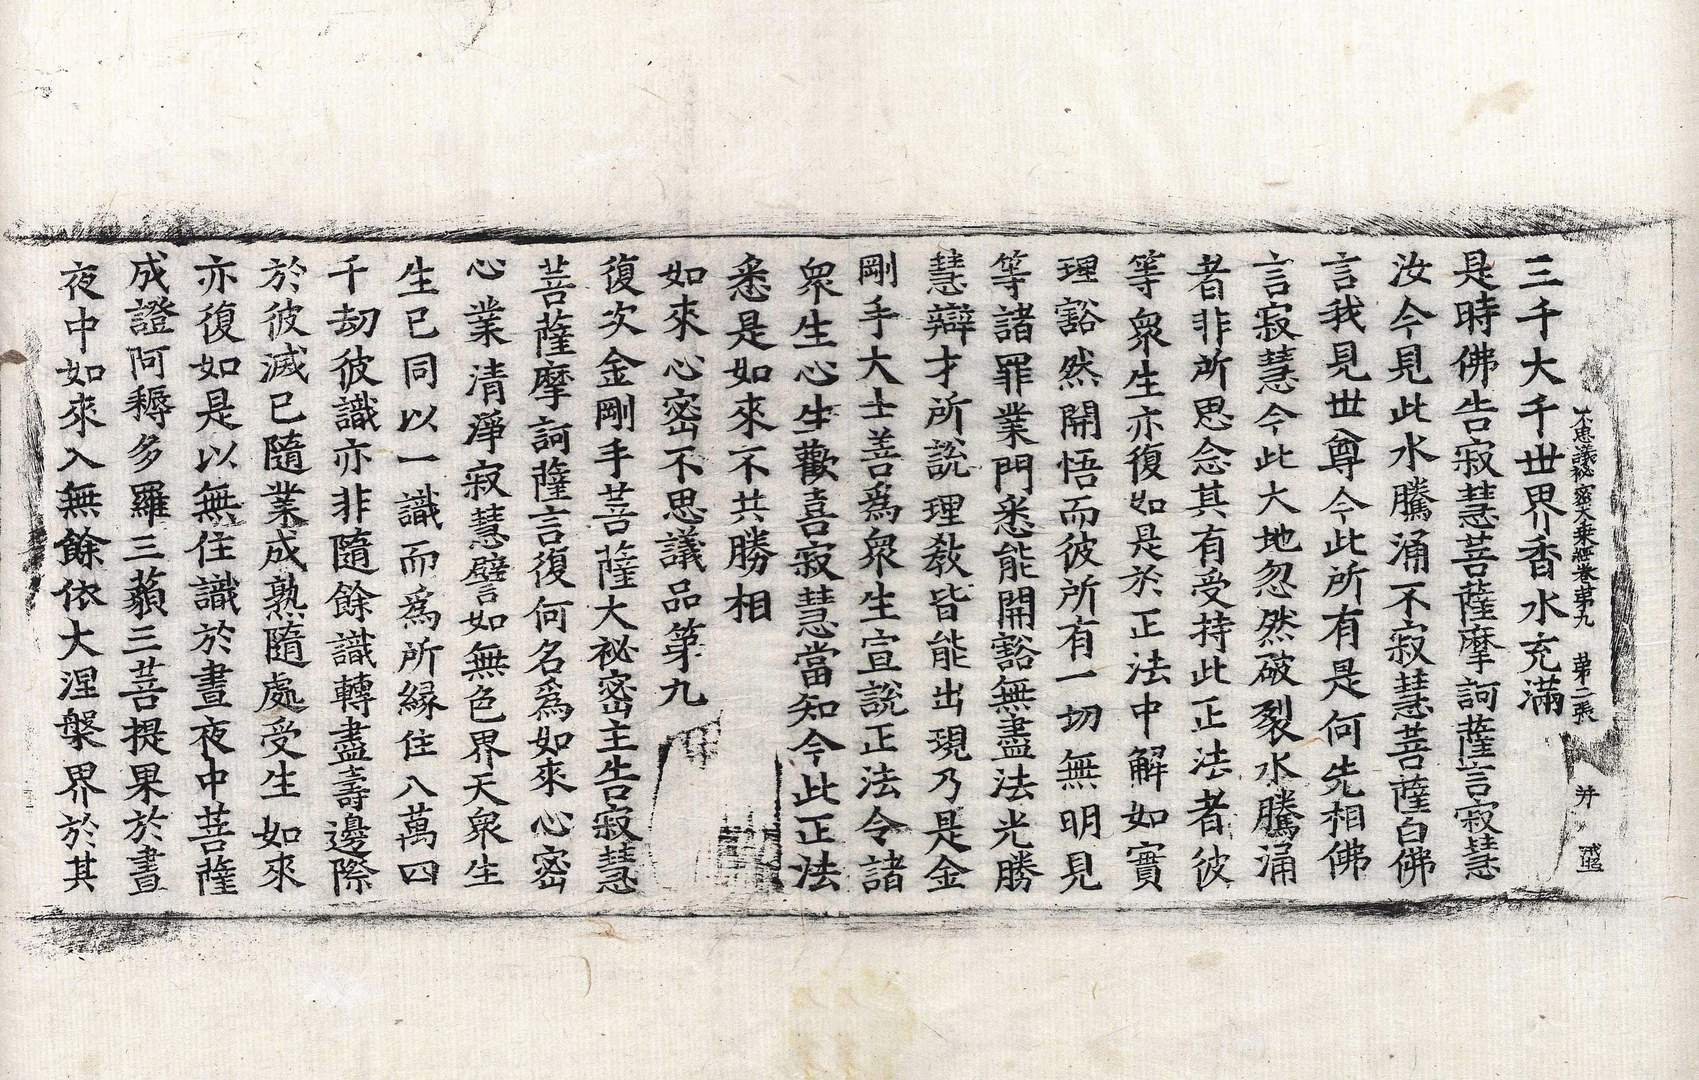 不思議秘密大乘經卷第九 第二張
三千大千世界香水充滿
是時佛告寂慧菩薩摩訶薩言寂慧
汝今見此水騰涌不寂慧菩薩白佛
言我見世尊今此所有是何先相佛
言寂慧今此大地忽然破裂水騰涌
者非所思念其有受持此正法者彼
等衆生亦復如是於正法中解如實
理豁然開悟而彼所有一切無明見
等諸罪業門悉能開豁無盡法光勝
慧辯才所說理教皆能出現乃是金
剛手大士善爲衆生宣說正法令諸
衆生心生歡喜寂慧當知今此正法
悉是如來不共勝相
如來心密不思議品第九
復次金剛手菩薩大祕密主告寂慧
菩薩摩訶薩言復何名爲如來心密
心業清淨寂慧譬如無色界天衆生
生已同以一識而爲所縁住八萬四
千劫彼識亦非隨餘識轉盡壽邊際
於彼滅已隨業成熟隨處受生如來
亦復如是以無住識於晝夜中菩薩
成證阿耨多羅三藐三菩提果於晝
夜中如來入無餘依大涅槃界於其